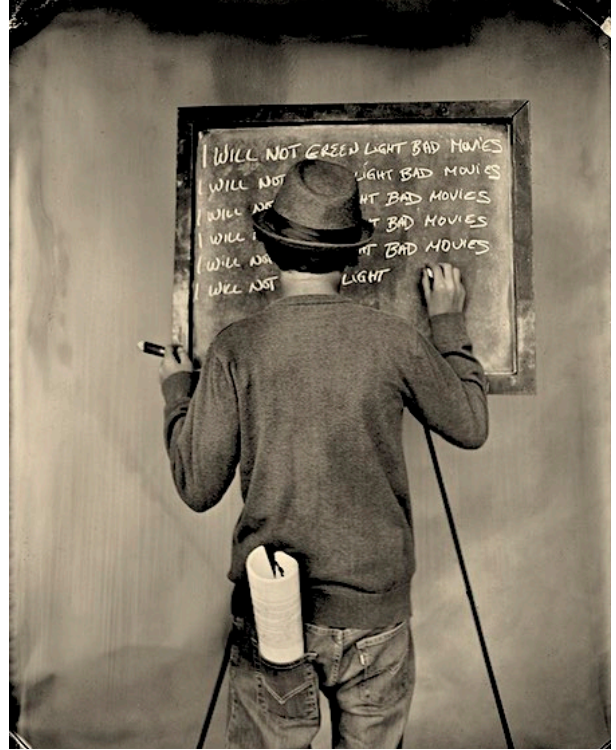 I WILL NOT GREEN LIGHT BAD MOVIES
I WILL NOT LIGHT BAD MOVIES
I WILL BAD MOVIES
I WILL BAD MOVIES
I WILL NOT BAD MOVIES
I WILL NOT LIGHT